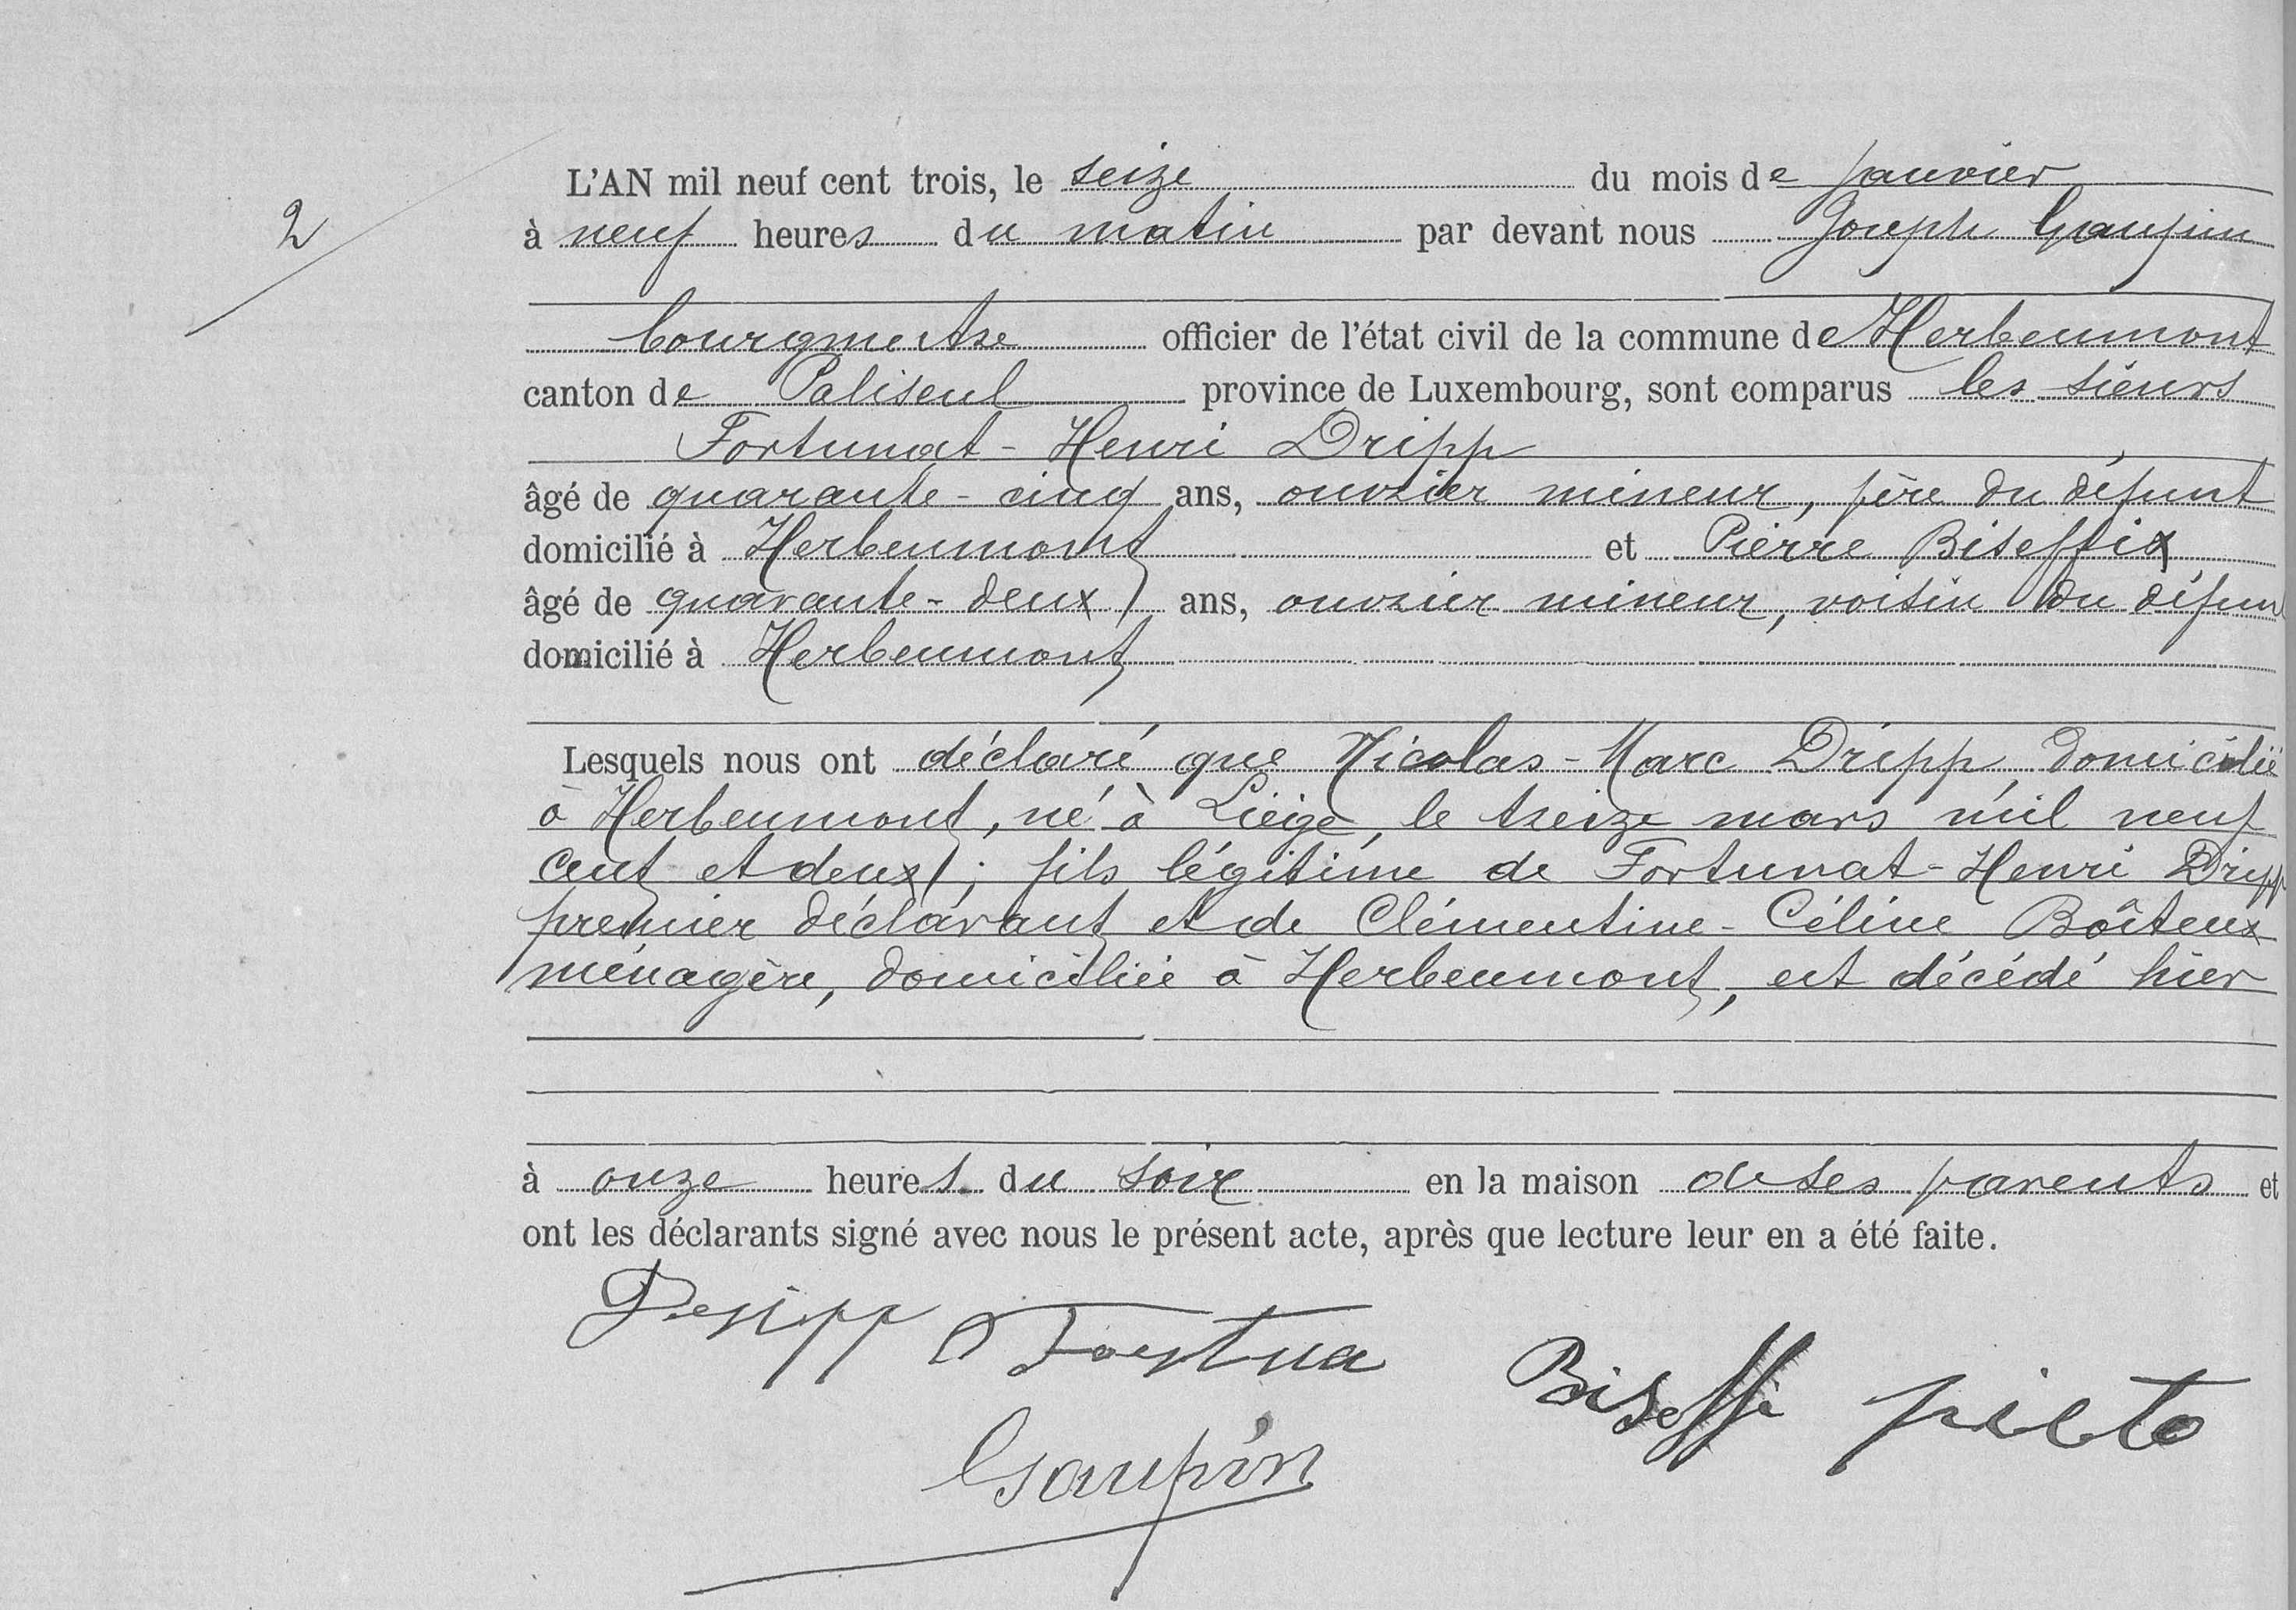 2
L'AN mil neuf cent trois, le seize du mois de janvier
à neuf heures du matin par devant nous Joseph Gaupin
bourgmestre officier de l'état civil de la commune de Herbeumont
canton de Paliseul province de Luxembourg, sont comparus les sieurs
Fortunat-Henri Dripp
âgé de quarante-cinq ans, ouvrier mineur, père du défunt
domicilié à Herbeumont et Pierre Biseffix
âgé de quarante-deux ans, ouvrier mineur, voisin du défun
domicilié à Herbeumont
Lesquels nous ont déclaré que Nicolas-Marc Dripp, domicilié
à Herbeumont, né à Liège, le treize mars mil neuf
cent et deux; fils légitime de Fortunat-Henri Dripp
premier déclarant et de Clémentine-Céline Boîteux
ménagère, domiciliée à Herbeumont, est décédé hier
à onze heures du soir en la maison de ses parents et
ont les déclarants signé avec nous le présent acte, après que lecture leur en a été faite.
Dripp Biseffi
Gaupin